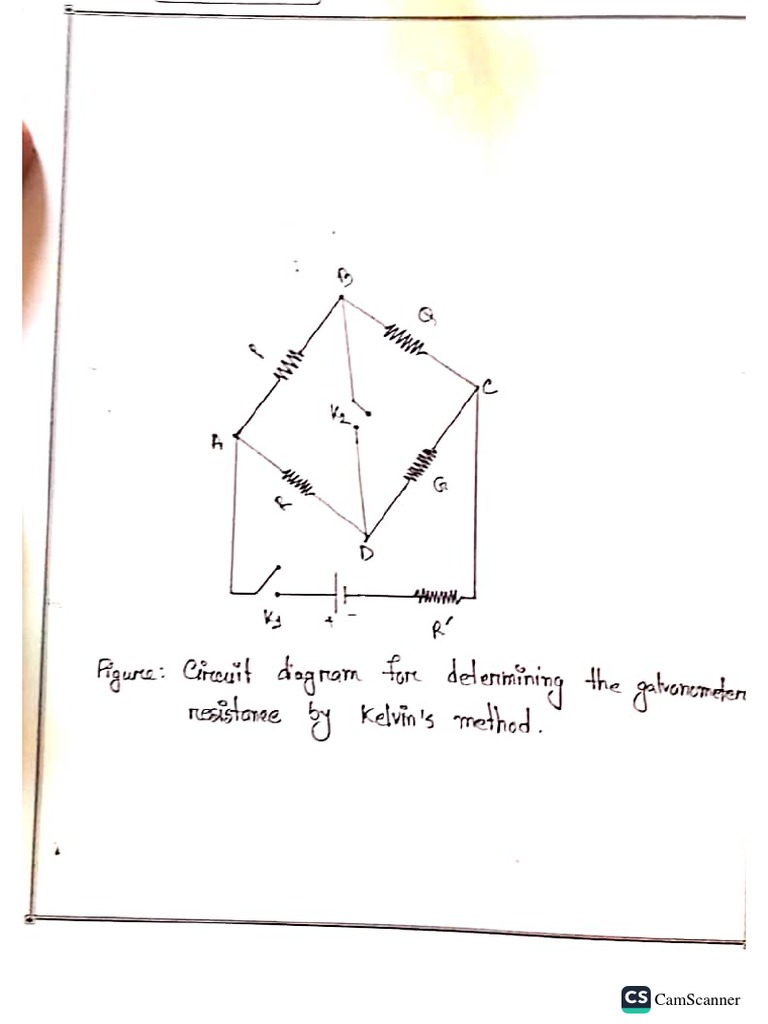 B
Q
P
C
K2
A
G
R
D
K1
+ -
R'
Figure: Circuit diagram for determining the galvanometer
resistance by Kelvin's method.
CS CamScanner